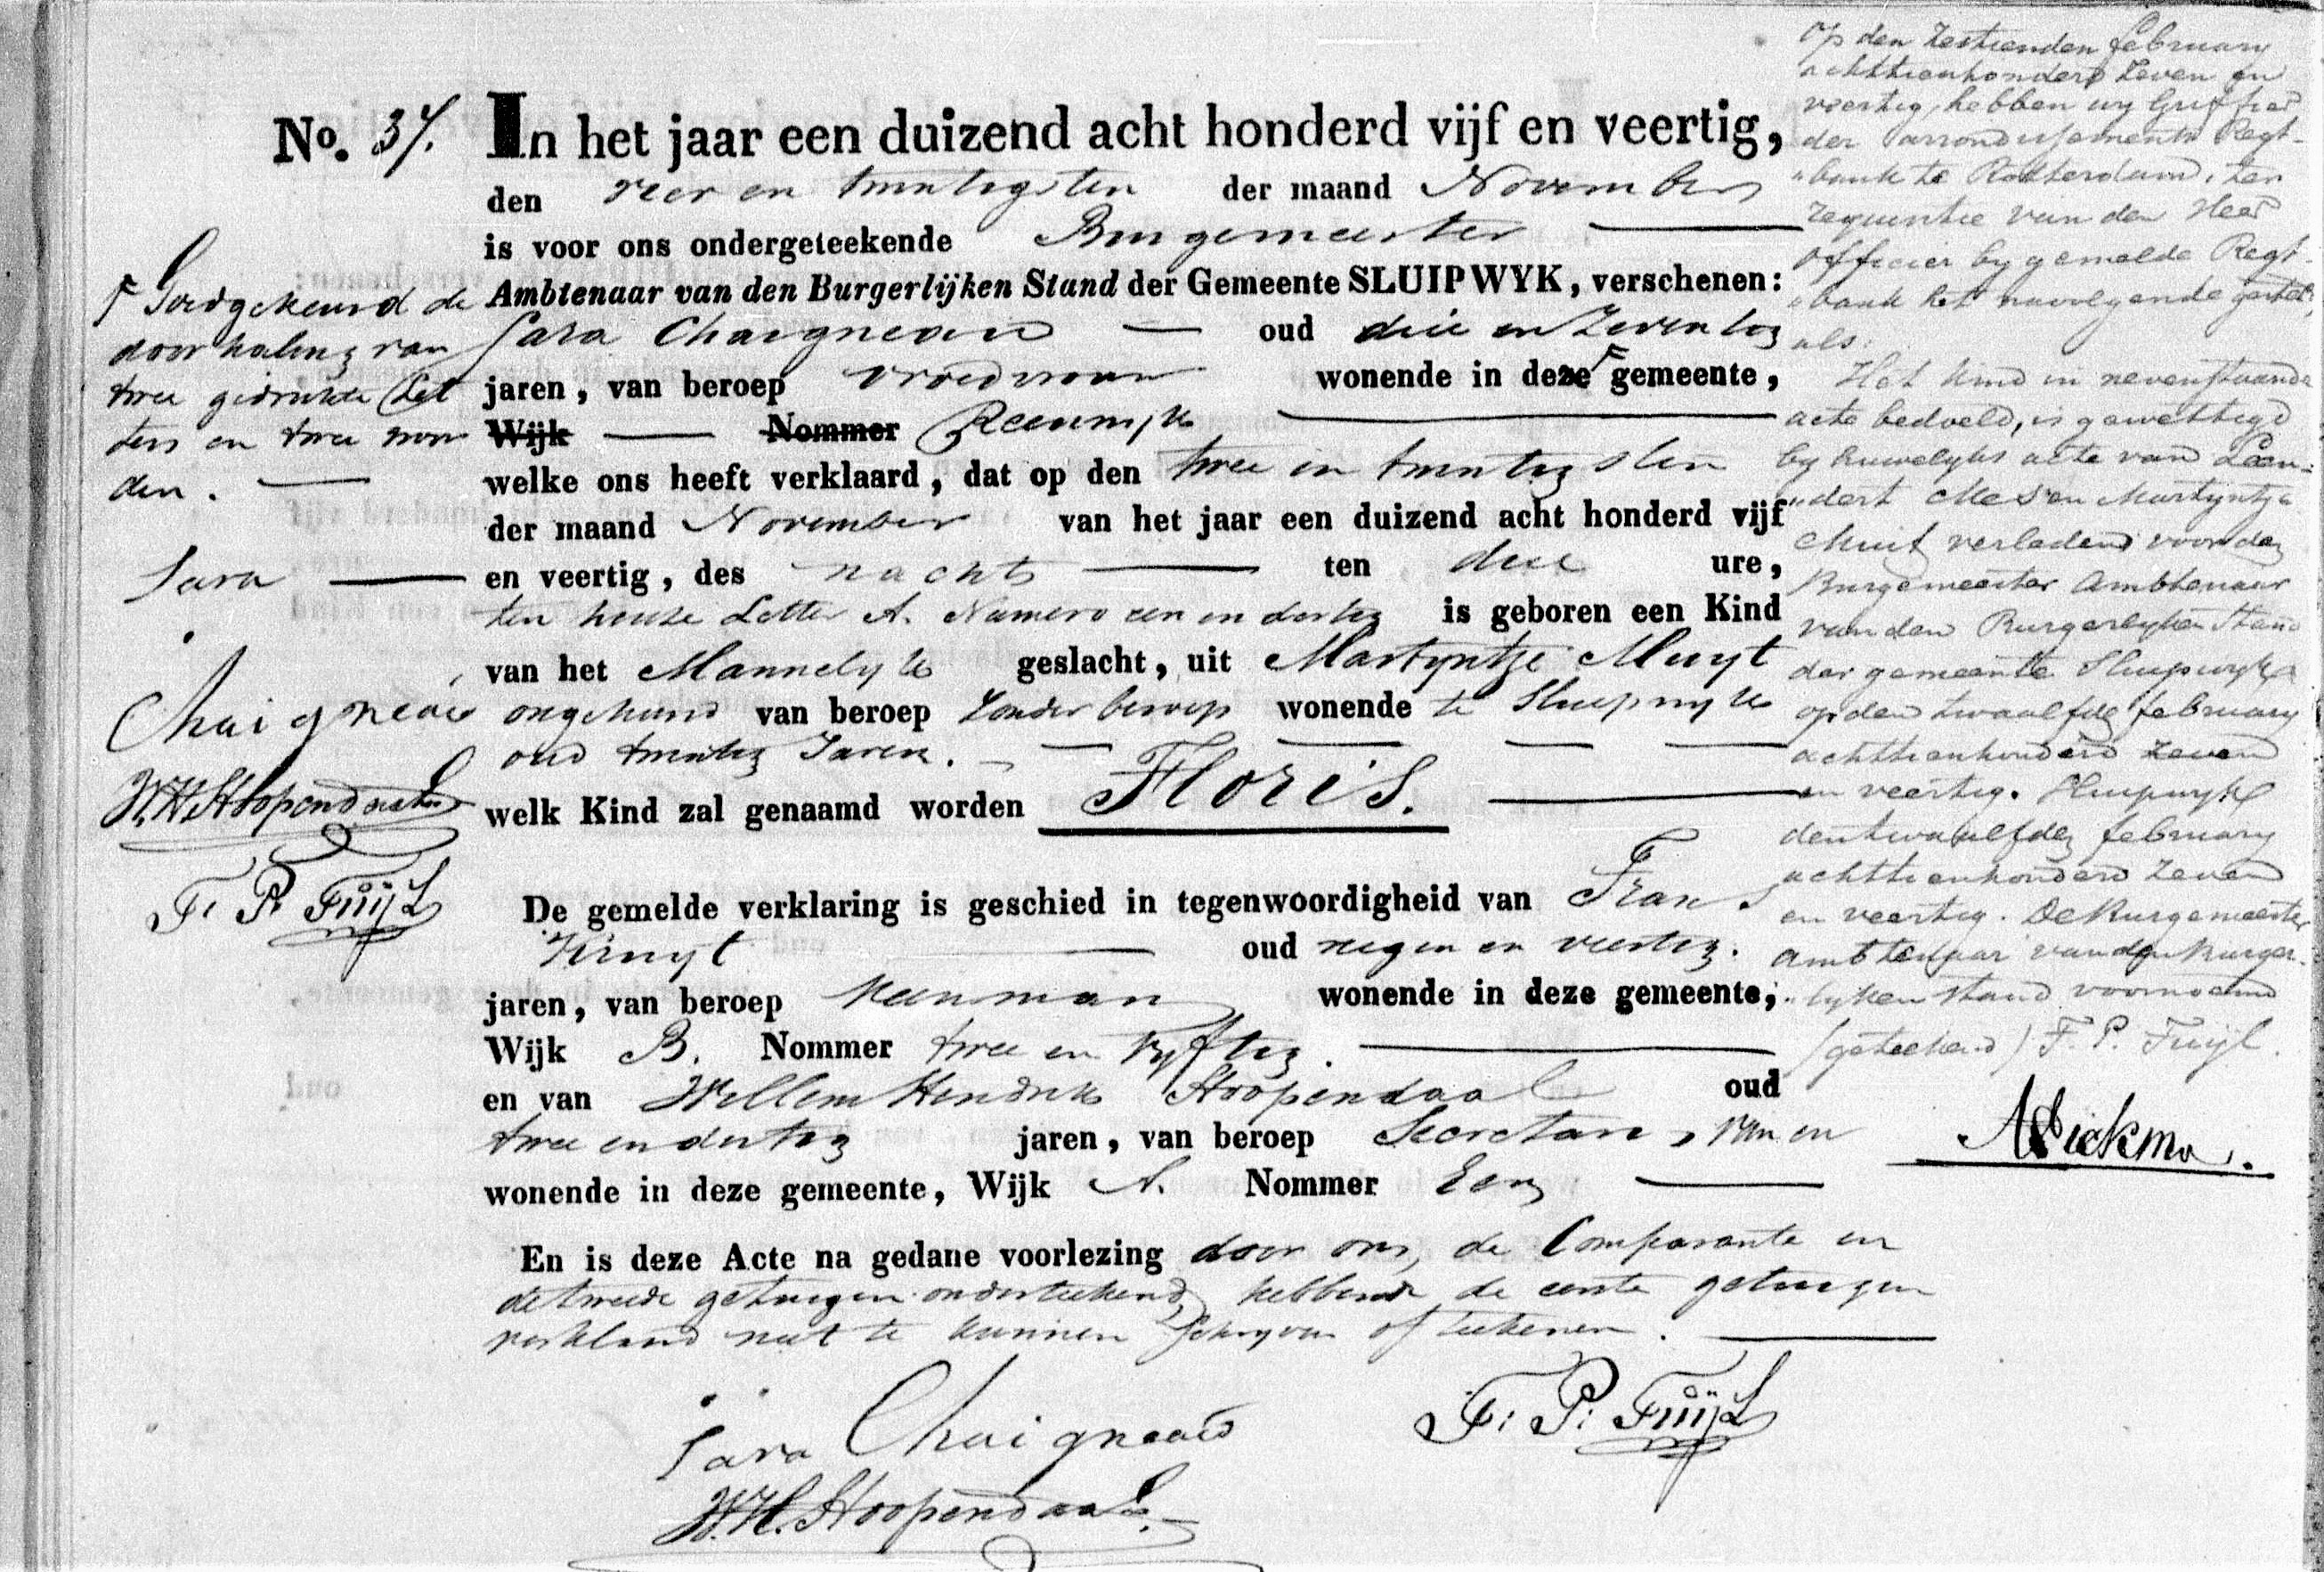 No. 37.
In het jaar een duizend acht honderd vijf en veertig,
den vier en twintigsten der maand November
is voor ons ondergeteekende Burgemeester
Ambtenaar van den Burgerlijken Stand der Gemeente SLUIPWYK, verschenen:
Sara Chaigneau oud drie en Zeventig
jaren, van beroep vroedvrouw wonende in deze gemeente,
Wijk Nommer Reeuwijk
welke ons heeft verklaard, dat op den twee en twintigsten
der maand November van het jaar een duizend acht honderd vijf
en veertig, des nachts ten drie ure,
ten huize Letter A. Numero een en dertig is geboren een Kind
van het Mannelyk geslacht, uit Martyntje Muyt
ongehuwd van beroep zonder beroep wonende te Sluipwyk
oud twintig Jaren.
welk Kind zal genaamd worden Floris.
De gemelde verklaring is geschied in tegenwoordigheid van Frans
Kruyt oud negen en veertig.
jaren, van beroep bouwman wonende in deze gemeente,
Wijk B. Nommer twee en vyftig.
en van Willem Hendrik Hoopendaal oud
twee en dertig jaren, van beroep Secretaris, van en
wonende in deze gemeente, Wijk A. Nommer Een
En is deze Acte na gedane voorlezing door ons, de Comparante en
de tweede getuigen onderteekend, hebbende de eerste getuigen
verklaard niet te kunnen schryven of teekenen.
Sara Chaigneau
F: P: Tuijl
W.H. Hoopendaal
Goedgekeurd de
doorhaling van
twee gedrukte Let
ters en twee woor
den.
Sara
Chaigneau
W.H. Hoopendaal
F. P. Tuijl
Op den Zestienden february
achttienhonderd Zeven en
veertig, hebben wy Griffier
der arrondissements Regt-
bank te Rotterdam, ter
requisitie van den Heer
officier by gemelde Regt-
bank het navolgende gesteld,
als:
Het kind in nevenstaande
acte bedoeld, is gewettigd
by huwelyks acte van Leen-
dert Mes en Martyntje
Muit verleden voor den
Burgemeester Ambtenaar
van den Burgerlyken Stand
der gemeente Sluipwyk
op den twaalfde february
achttienhonderd Zeven
en veertig. Sluipwyk
den twaalfden february
achttienhonderd Zeven
en veertig. De Burgemeester
Ambtenaar van den Burger-
lyken stand voornoemd
(geteekend) F. P. Tuijl.